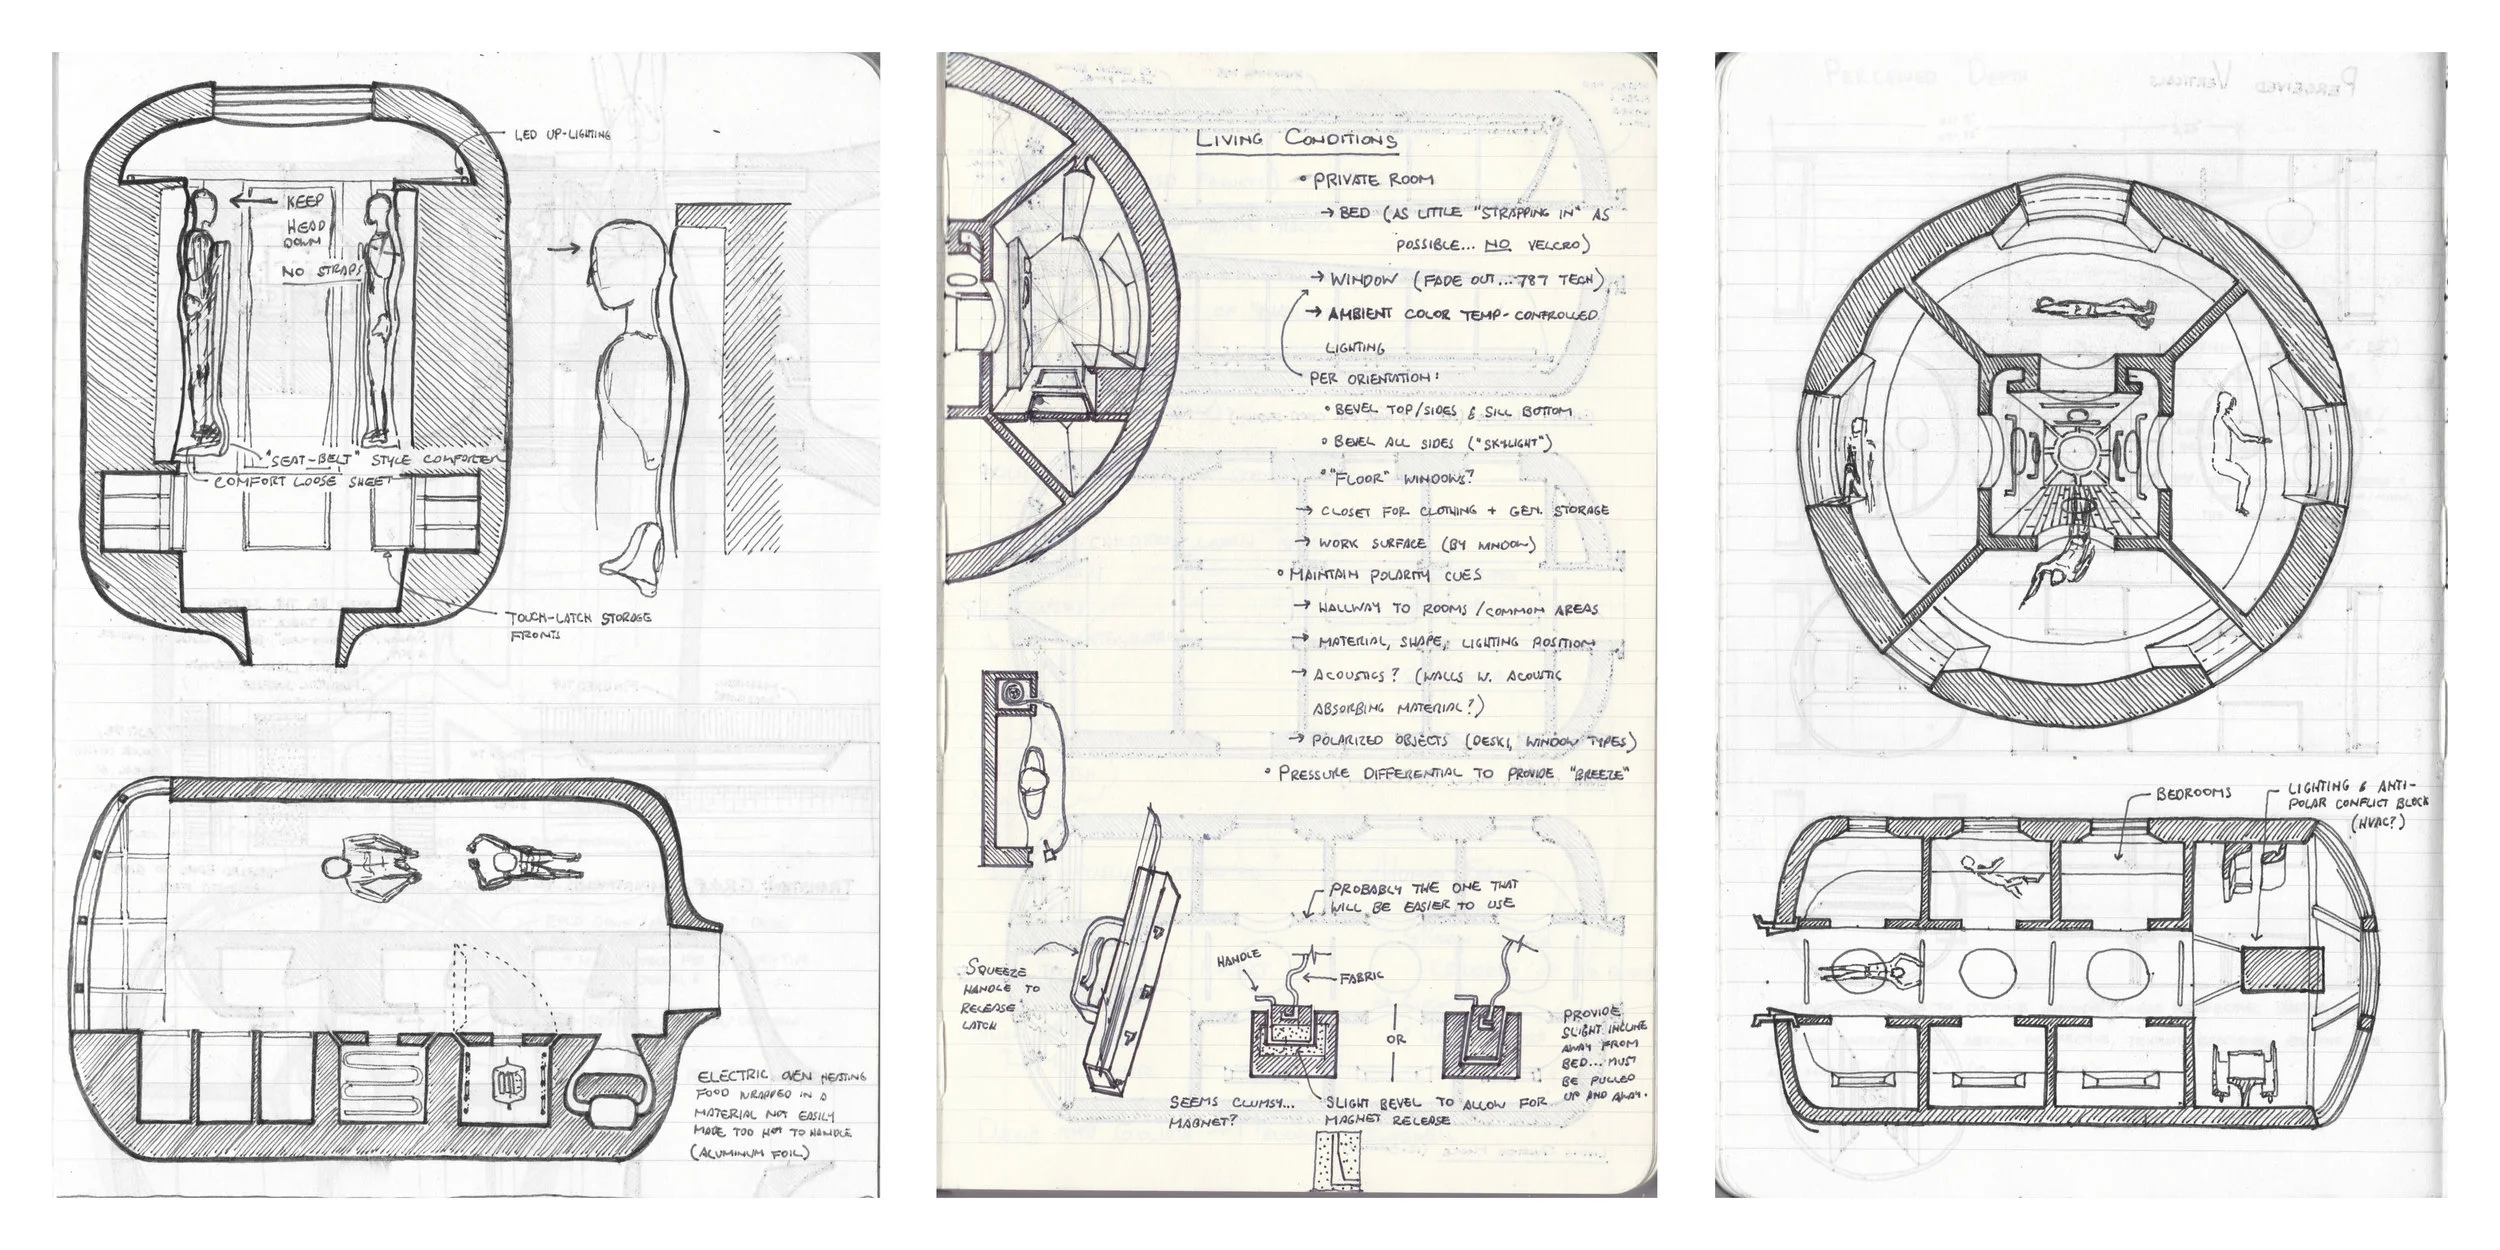 LED UP-LIGHTING
KEEP
HEAD
DOWN
NO STRAPS
"SEAT-BELT" STYLE COMFORTER
COMFORT LOOSE SHEET
TOUCH-LATCH STORAGE
FRONTS
ELECTRIC OVEN HEATING
FOOD WRAPPED IN A
MATERIAL NOT EASILY
MADE TOO HOT TO HANDLE
(ALUMINUM FOIL)
LIVING CONDITIONS
• PRIVATE ROOM
→ BED (AS LITTLE "STRAPPING IN" AS
POSSIBLE... NO VELCRO)
→ WINDOW (FADE OUT...787 TECH)
→ AMBIENT COLOR TEMP-CONTROLLED
LIGHTING
PER ORIENTATION:
• BEVEL TOP/SIDES & SILL BOTTOM
• BEVEL ALL SIDES ("SKYLIGHT")
• "FLOOR" WINDOWS?
→ CLOSET FOR CLOTHING + GEN. STORAGE
→ WORK SURFACE (BY WINDOW)
• MAINTAIN POLARITY CUES
→ HALLWAY TO ROOMS/COMMON AREAS
→ MATERIAL, SHAPE, LIGHTING POSITION
→ ACOUSTICS? (WALLS W. ACOUSTIC
ABSORBING MATERIAL?)
→ POLARIZED OBJECTS (DESK, WINDOW TYPES)
• PRESSURE DIFFERENTIAL TO PROVIDE "BREEZE"
PROBABLY THE ONE THAT
WILL BE EASIER TO USE
SQUEEZE
HANDLE TO
RELEASE
LATCH
HANDLE
FABRIC
OR
PROVIDE
SLIGHT INCLINE
AWAY FROM
BED... MUST
BE PULLED
UP AND AWAY.
SEEMS CLUMSY...
MAGNET?
SLIGHT BEVEL TO ALLOW FOR
MAGNET RELEASE
PERCEIVED VERTICALS
BEDROOMS
LIGHTING & ANTI-
POLAR CONFLICT BLOCK
(HVAC?)